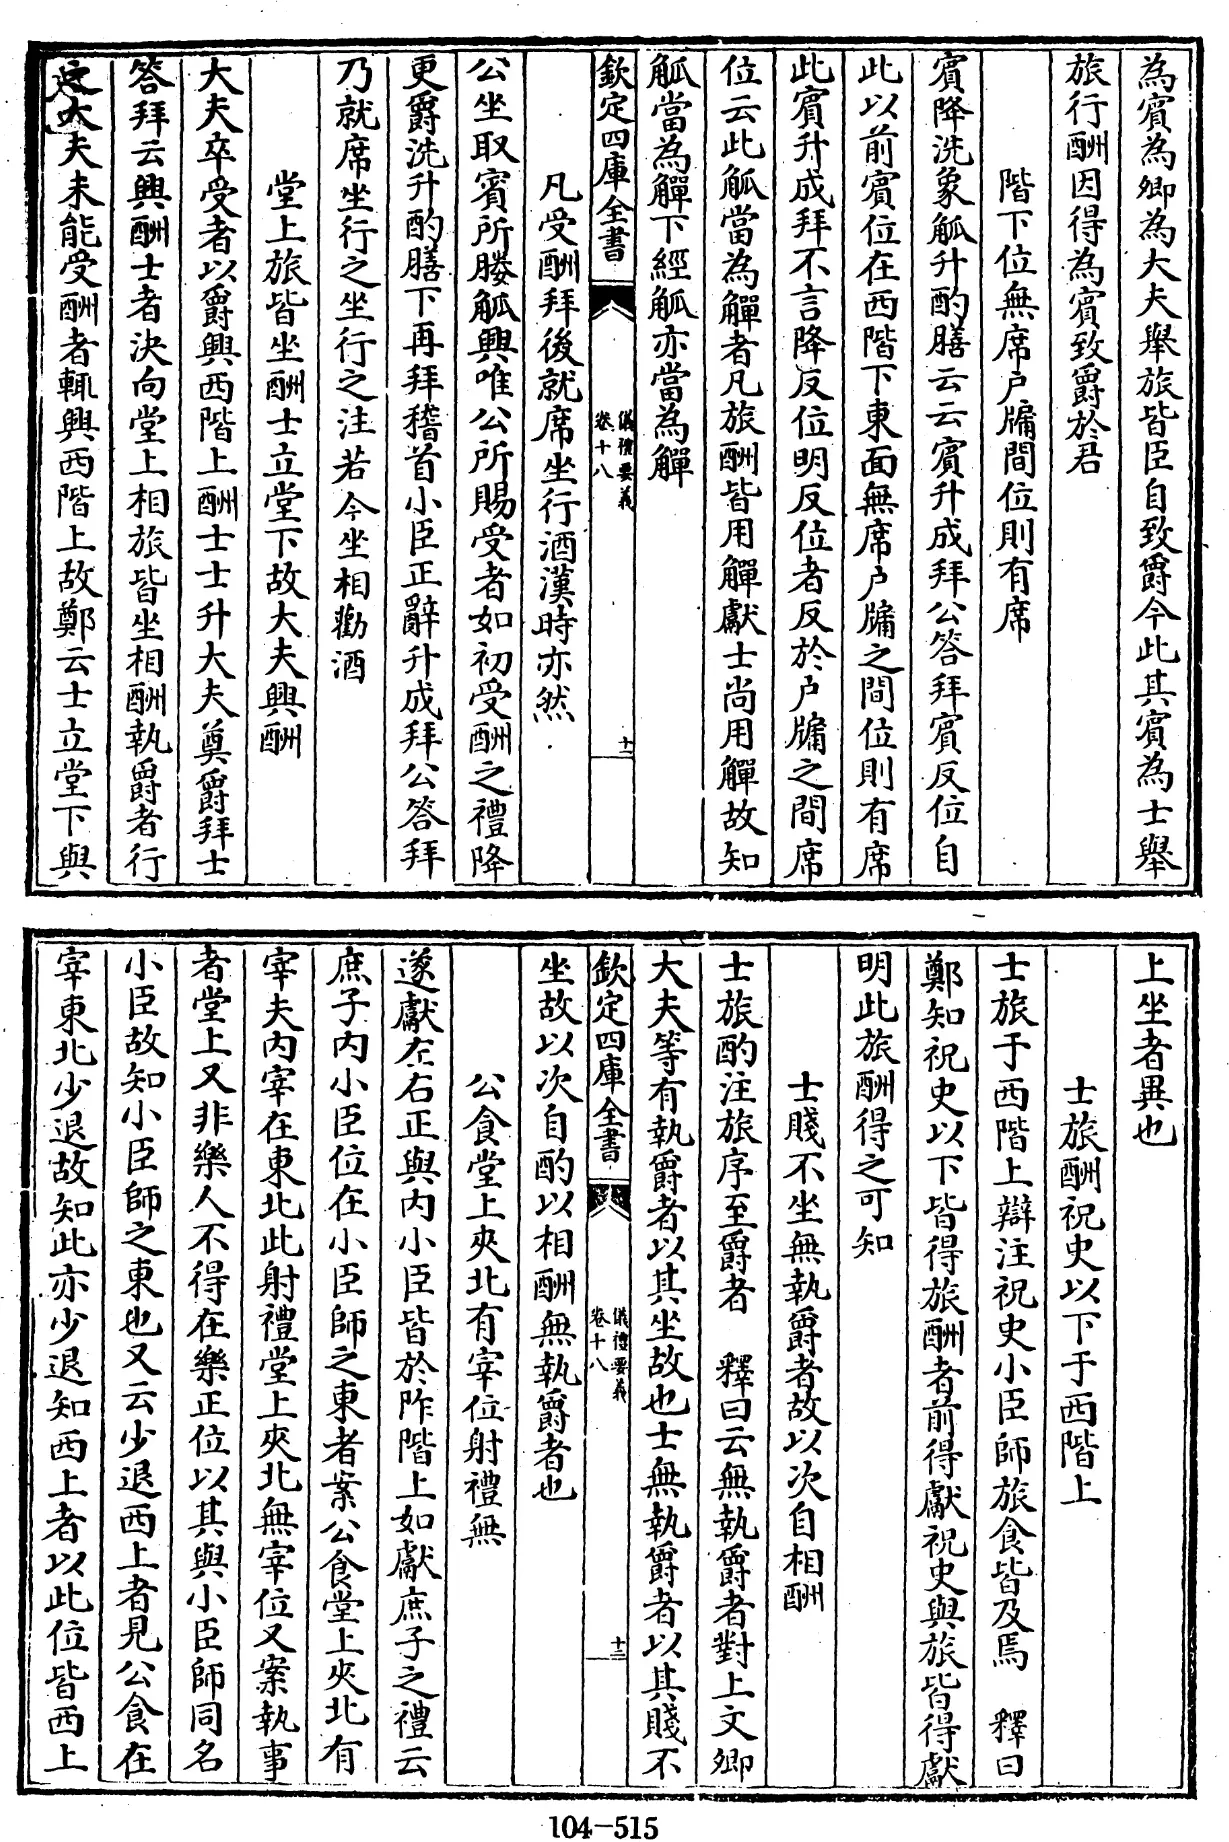 為賓為卿為大夫舉旅皆臣自致爵今此其賓為士舉
旅行酬因得為賓致爵於君
階下位無席戶牖間位則有席
賓降洗象觚升酌膳云云賓升成拜公答拜賓反位自
此以前賓位在西階下東面無席戶牖之間位則有席
此賓升成拜不言降反位明反位者反於戶牖之間席
位云此觚當為觶者凡旅酬皆用觶獻士尚用觶故知
觚當為觶下經觚亦當為觶
欽定四庫全書
儀禮要義
卷十八
十二
凡受酬拜後就席坐行酒漢時亦然
公坐取賓所媵觚興唯公所賜受者如初受酬之禮降
更爵洗升酌膳下再拜稽首小臣正辭升成拜公答拜
乃就席坐行之坐行之注若今坐相勸酒
堂上旅皆坐酬士立堂下故大夫興酬
大夫卒受者以爵興西階上酬士士升大夫奠爵拜士
答拜云興酬士者決向堂上相旅皆坐相酬執爵者行
之大夫未能受酬者輒興西階上故鄭云士立堂下與
上坐者異也
士旅酬祝史以下于西階上
士旅于西階上辯注祝史小臣師旅食皆及焉　釋曰
鄭知祝史以下皆得旅酬者前得獻祝史與旅皆得獻
明此旅酬得之可知
士賤不坐無執爵者故以次自相酬
士旅酌注旅序至爵者　釋曰云無執爵者對上文卿
大夫等有執爵者以其坐故也士無執爵者以其賤不
欽定四庫全書
儀禮要義
卷十八
十三
坐故以次自酌以相酬無執爵者也
公食堂上夾北有宰位射禮無
遂獻左右正與內小臣皆於阼階上如獻庶子之禮云
庶子內小臣位在小臣師之東者案公食堂上夾北有
宰夫內宰在東北此射禮堂上夾北無宰位又案執事
者堂上又非樂人不得在樂正位以其與小臣師同名
小臣故知小臣師之東也又云少退西上者見公食在
宰東北少退故知此亦少退知西上者以此位皆西上
104-515